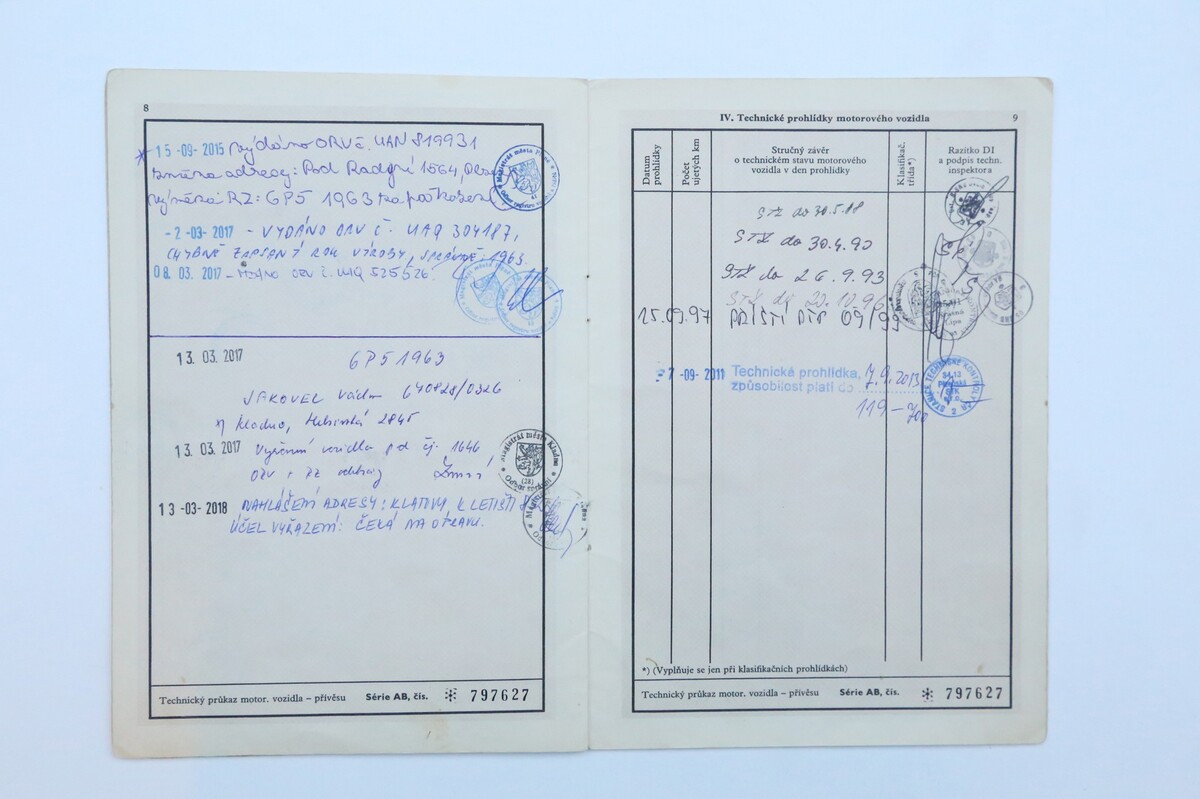 8
15-09-2015 Vydáno ORV č. UAN 819931
změna adresy: Pod Radyní 1564,
výměna RZ: 6P5 1963 za poškozen
-2-03-2017 - VYDÁNO ORV č. UAQ 304187,
CHYBNĚ ZAPSANÝ ROK VÝROBY, SPRÁVNĚ: 1963
08.03.2017 - VYDÁNO ORV č. UAQ 525526
13. 03. 2017 6P5 1963
Václav 640828/0326
Kladno, 2845
13. 03. 2017 vozidla pod čj. 1646
ORV + RZ
13-03-2018 NAHLÁŠENÍ ADRESY: KLATOVY, K LETIŠTI
ÚČEL VYŘAZENÍ: ČEKÁ NA OPRAVU.
Technický průkaz motor. vozidla – přívěsu Série AB, čís. ✻ 797627
IV. Technické prohlídky motorového vozidla 9
Datum prohlídky
Počet ujetých km
Stručný závěr
o technickém stavu motorového
vozidla v den prohlídky
Klasifikač. třída *)
Razítko DI
a podpis techn.
inspektora
STK do 30.5.88
STK do 30.4.90
STK do 26.9.93
STK do 20.10.96
15.09.97 PŘÍŠTÍ 09/99
7-09-2011 Technická prohlídka, 7.9.2013
způsobilost platí do
119-
STANICE TECHNICKÉ KONTROLY
*) (Vyplňuje se jen při klasifikačních prohlídkách)
Technický průkaz motor. vozidla – přívěsu Série AB, čís. ✻ 797627